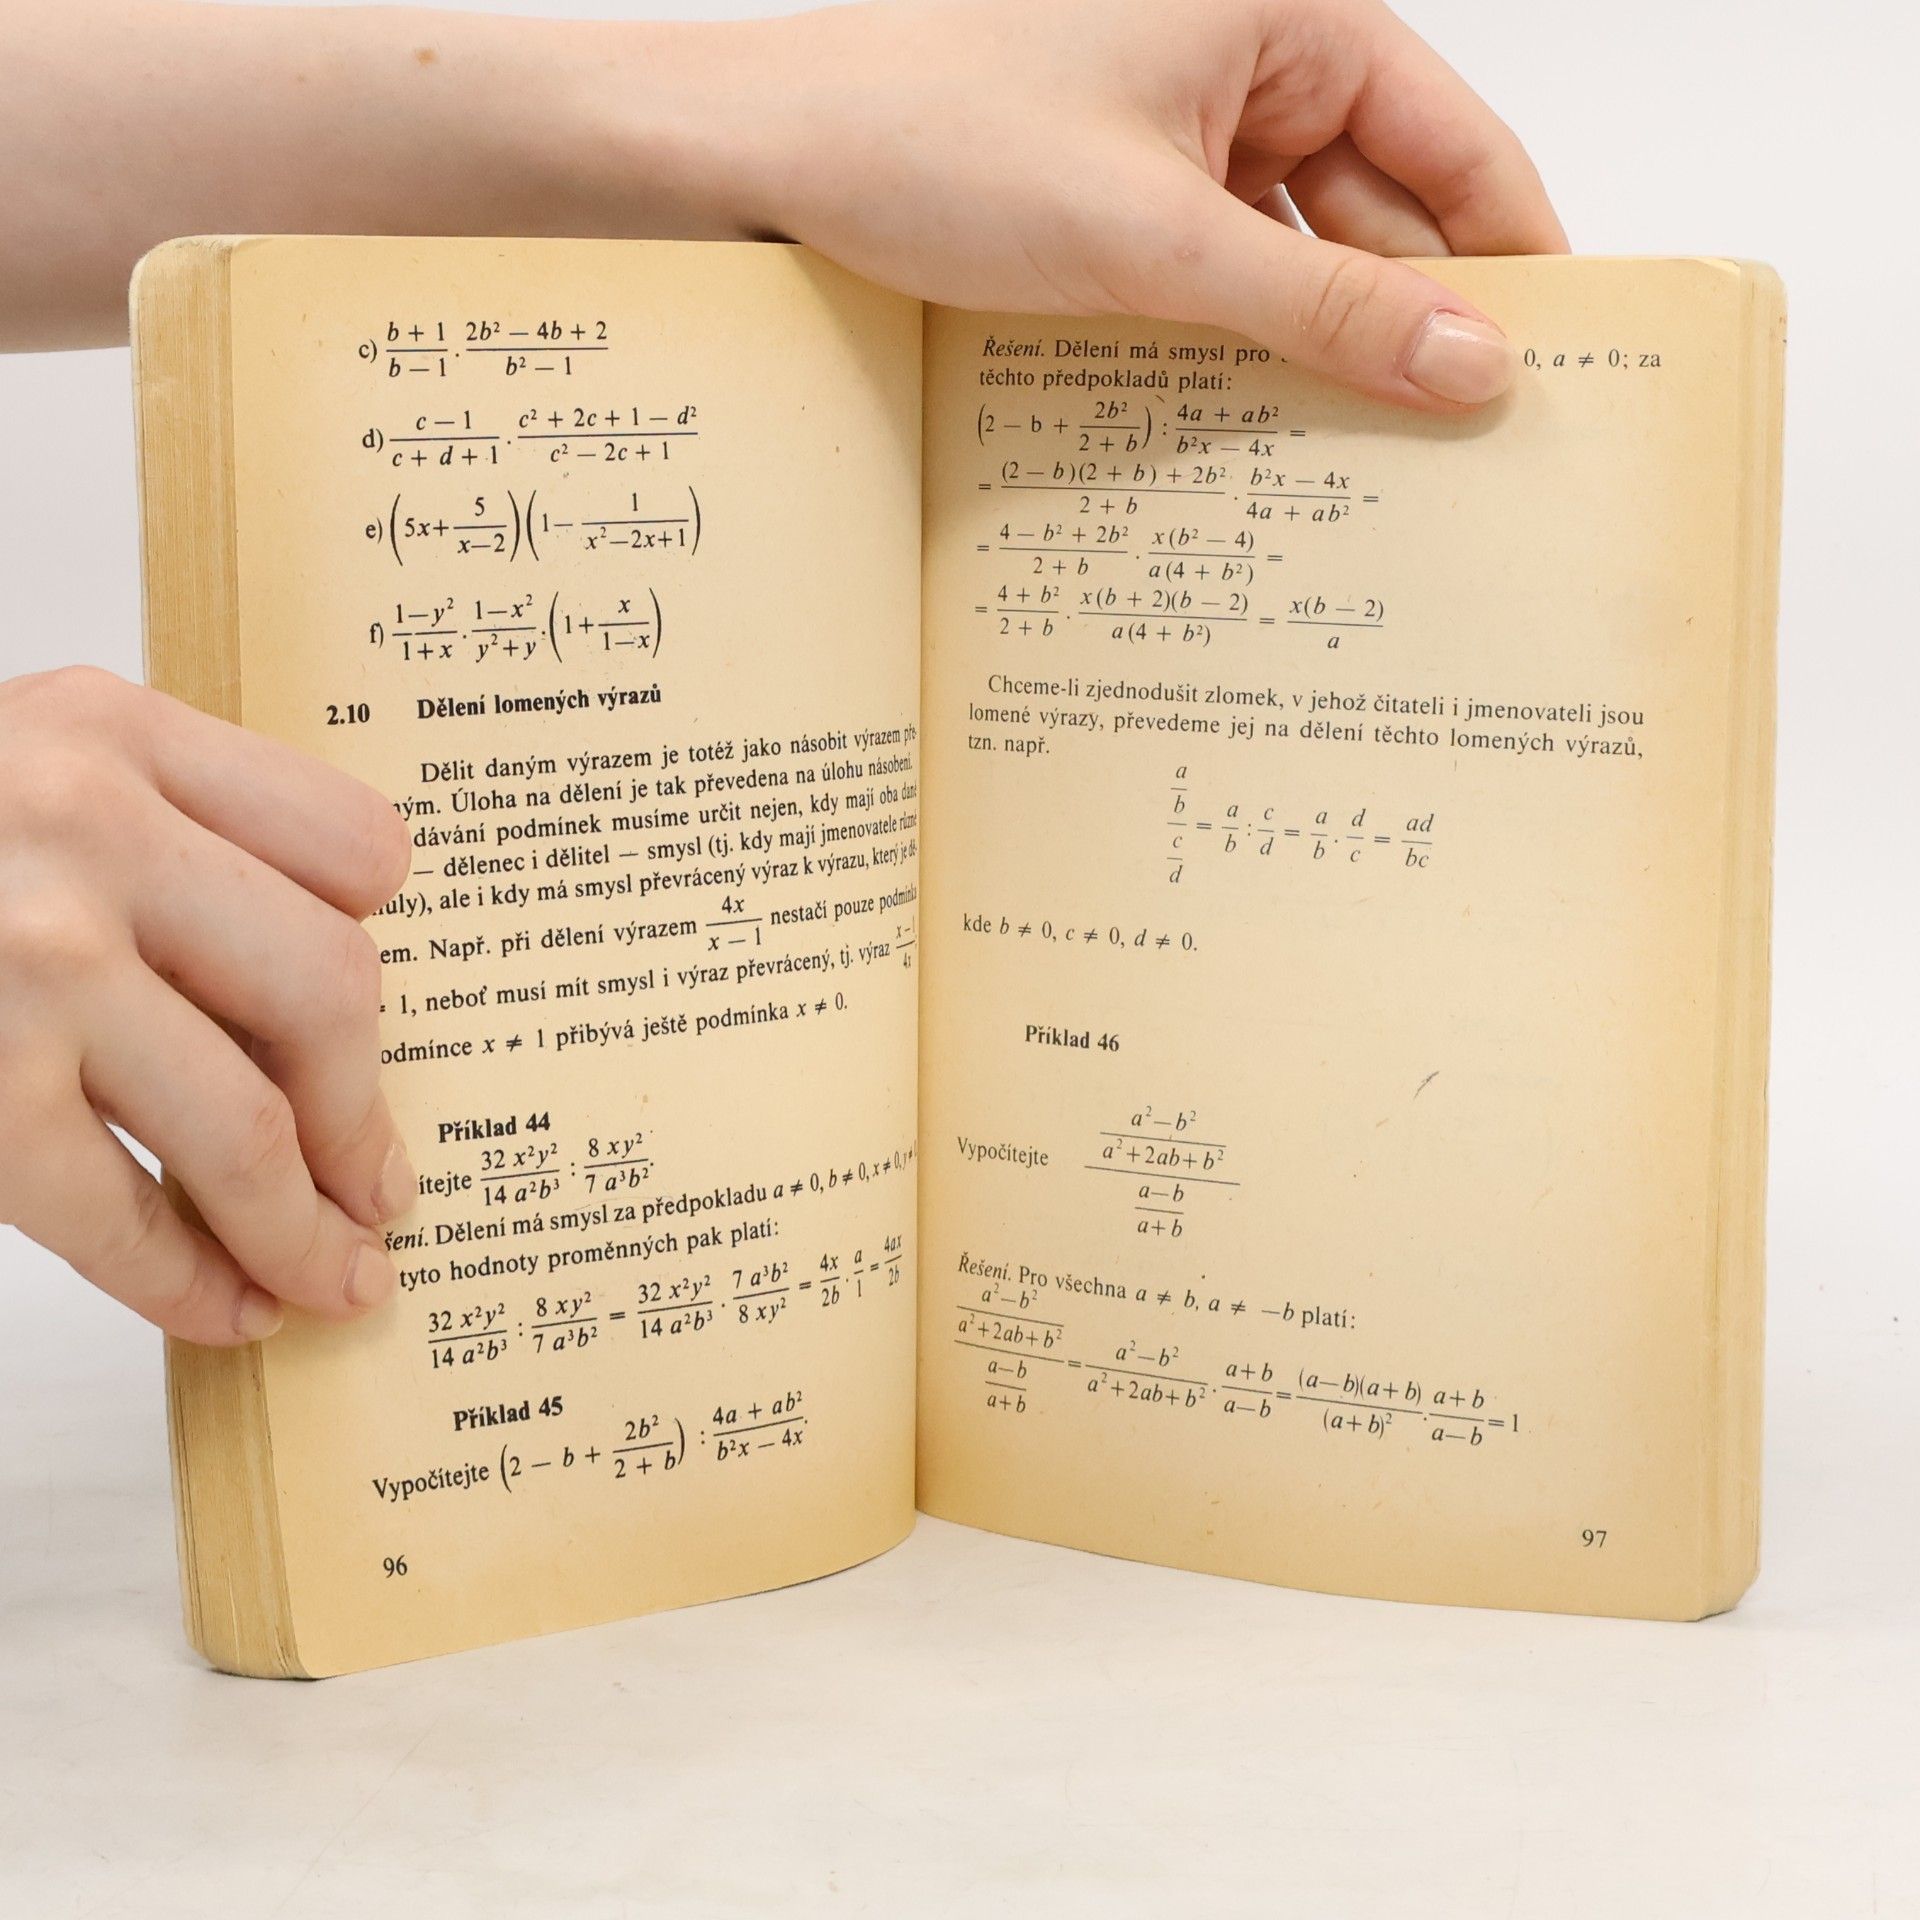 c) (b + 1)/(b — 1) . (2b² — 4b + 2)/(b² — 1)
d) (c — 1)/(c + d + 1) . (c² + 2c + 1 — d²)/(c² — 2c + 1)
e) (5x+ 5/(x—2)) (1— 1/(x²—2x+1))
f) (1—y²)/(1+x) . (1—x²)/(y²+y) . (1+ x/(1—x))
2.10 Dělení lomených výrazů
Dělit daným výrazem je totéž jako násobit výrazem pře-
ným. Úloha na dělení je tak převedena na úlohu násobení.
dávání podmínek musíme určit nejen, kdy mají oba dané
— dělenec i dělitel — smysl (tj. kdy mají jmenovatele různé
nuly), ale i kdy má smysl převrácený výraz k výrazu, který je dě-
em. Např. při dělení výrazem 4x/(x — 1) nestačí pouze podmínka
≠ 1, neboť musí mít smysl i výraz převrácený, tj. výraz (x—1)/4x
odmínce x ≠ 1 přibývá ještě podmínka x ≠ 0.
Příklad 44
ítejte 32 x²y²/14 a²b³ : 8 xy²/7 a³b².
šení. Dělení má smysl za předpokladu a ≠ 0, b ≠ 0, x ≠ 0, y ≠
tyto hodnoty proměnných pak platí:
32 x²y²/14 a²b³ : 8 xy²/7 a³b² = 32 x²y²/14 a²b³ . 7 a³b²/8 xy² = 4x/2b . a/1 = 4ax/2b
Příklad 45
Vypočítejte (2 — b + 2b²/(2 + b)) : (4a + ab²)/(b²x — 4x).
96
Řešení. Dělení má smysl pro 0, a ≠ 0; za
těchto předpokladů platí:
(2 — b + 2b²/(2 + b)) : (4a + ab²)/(b²x — 4x) =
= ((2 — b)(2 + b) + 2b²)/(2 + b) . (b²x — 4x)/(4a + ab²) =
= (4 — b² + 2b²)/(2 + b) . x(b² — 4)/a(4 + b²) =
= (4 + b²)/(2 + b) . x(b + 2)(b — 2)/a(4 + b²) = x(b — 2)/a
Chceme-li zjednodušit zlomek, v jehož čitateli i jmenovateli jsou
lomené výrazy, převedeme jej na dělení těchto lomených výrazů,
tzn. např.
(a/b)/(c/d) = a/b : c/d = a/b . d/c = ad/bc
kde b ≠ 0, c ≠ 0, d ≠ 0.
Příklad 46
Vypočítejte ((a²—b²)/(a²+2ab+b²))/((a—b)/(a+b))
Řešení. Pro všechna a ≠ b, a ≠ —b platí:
((a²—b²)/(a²+2ab+b²))/((a—b)/(a+b)) = (a²—b²)/(a²+2ab+b²) . (a+b)/(a—b) = (a—b)(a+b)/(a+b)² . (a+b)/(a—b) = 1
97